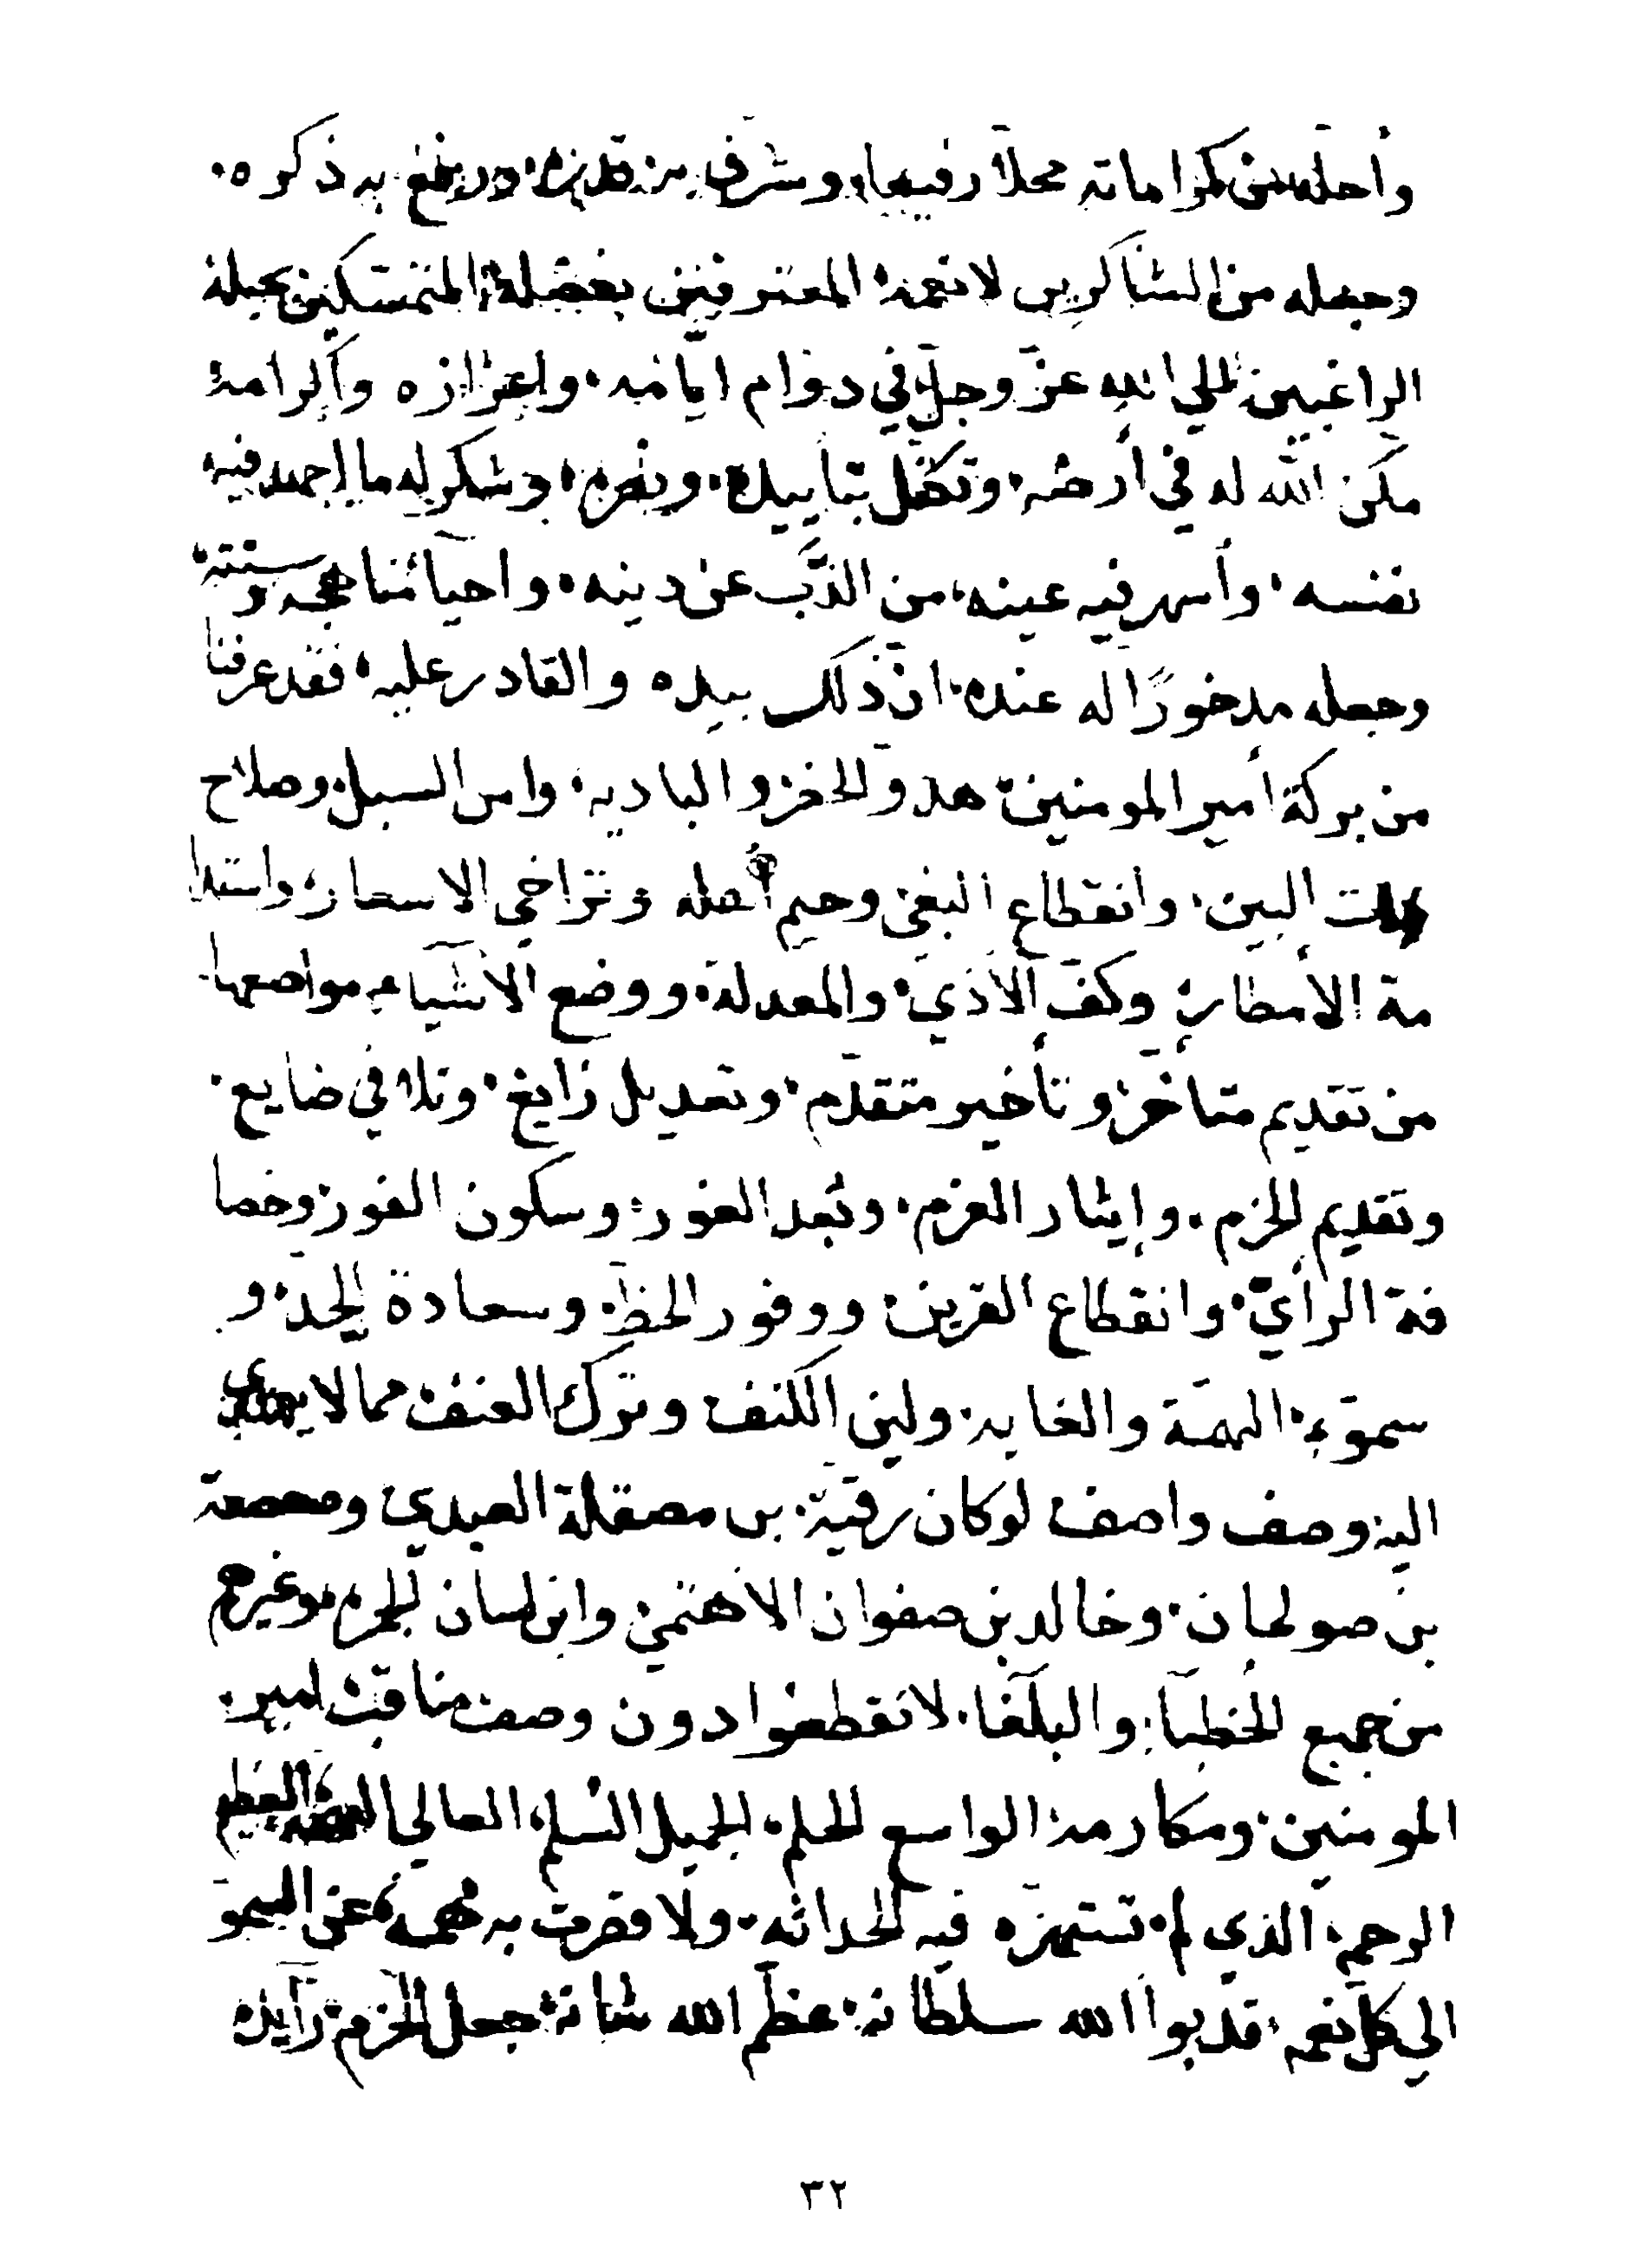 وأحله من كراماته محلاً رفيعا، وشرف به قدره، ورفع به ذكره.
وجعله من الشاكرين لانعمه، المعترفين بفضله، المتمسكين بحبله
الراغبين إلي الله عزّ وجلّ في دوام ايامه، واعزازه وإكرامه
مكّن الله له في أرضه، وتكفّل بتأييده، ونصره، وشكر له ما اجهد فيه
نفسه، وأسهر فيه عينه، من الذّب عن دينه، واحيائنا وسنته،
وجعله مدخورًا له عنده، انّ ذلك بيده والقادر عليه، فقد عرفنا
من بركة أمير المومنين، هدوّ الحضر والباديه، وامن السبل، وصلاح
ذات البين، وانقطاع البغي وحيم أهله وتراخي الاسعار، واستدا
مة الأمطار، وكفّ الأذي، والمعدلة، ووضع الأشياء مواضعها.
من تقديم متأخر، وتأخير متقدّم، وتعديل زايغ، وتلافي ضايع.
وتقديم الحزم، وإيثار العزم، وبُعد الغور، وسكون الفور، وخصا
فة الرأي، وانقطاع القرين، ووفور الحظ، وسعادة الجدّ، و
سموّ، الهمّة والغايه، ولين الكنف وترك العنف مما لا
اليه وصف واصف لو كان رقيّة بن مصقلة العبدي وصعصعة
بن صولجان، وخالد بن صفوان الاهتمي، وابن لسان الحمرة، وغيرهم
من جميع الخطبآء، والبلغا، لانقطعوا دون وصف مناقب امير
المومنين، ومكارمه، الواسع الحلم، الجميل السّلم، العالي العظيم
الرحيم، الذي لم تستهزه فيه الحداثه، ولا قصرت به همة، عن السموّ
الي كلّ نعمه، قد بوأ الله سلطانه، عظّم الله شانه، جعل الحزم، رآيده
٣٢